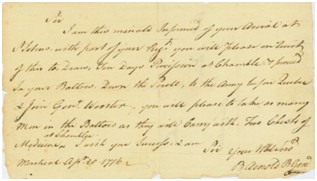 Sir
I am this minute Informd of your Arrival at
St Johns with part of your Regt you will please on Receipt
of this to Draw Ten Days Provision at Chamble & proceed
in your Battoes Down the to the Army before Quebec
& Join Genl Wooster you will please to take as many
Men in the Battoes as they will Carry with Two Chests of
Medicine at Chamble I wish you Success & am Sir Your Hble Servt
Montreal Apl 1776 B Arnold B Genl